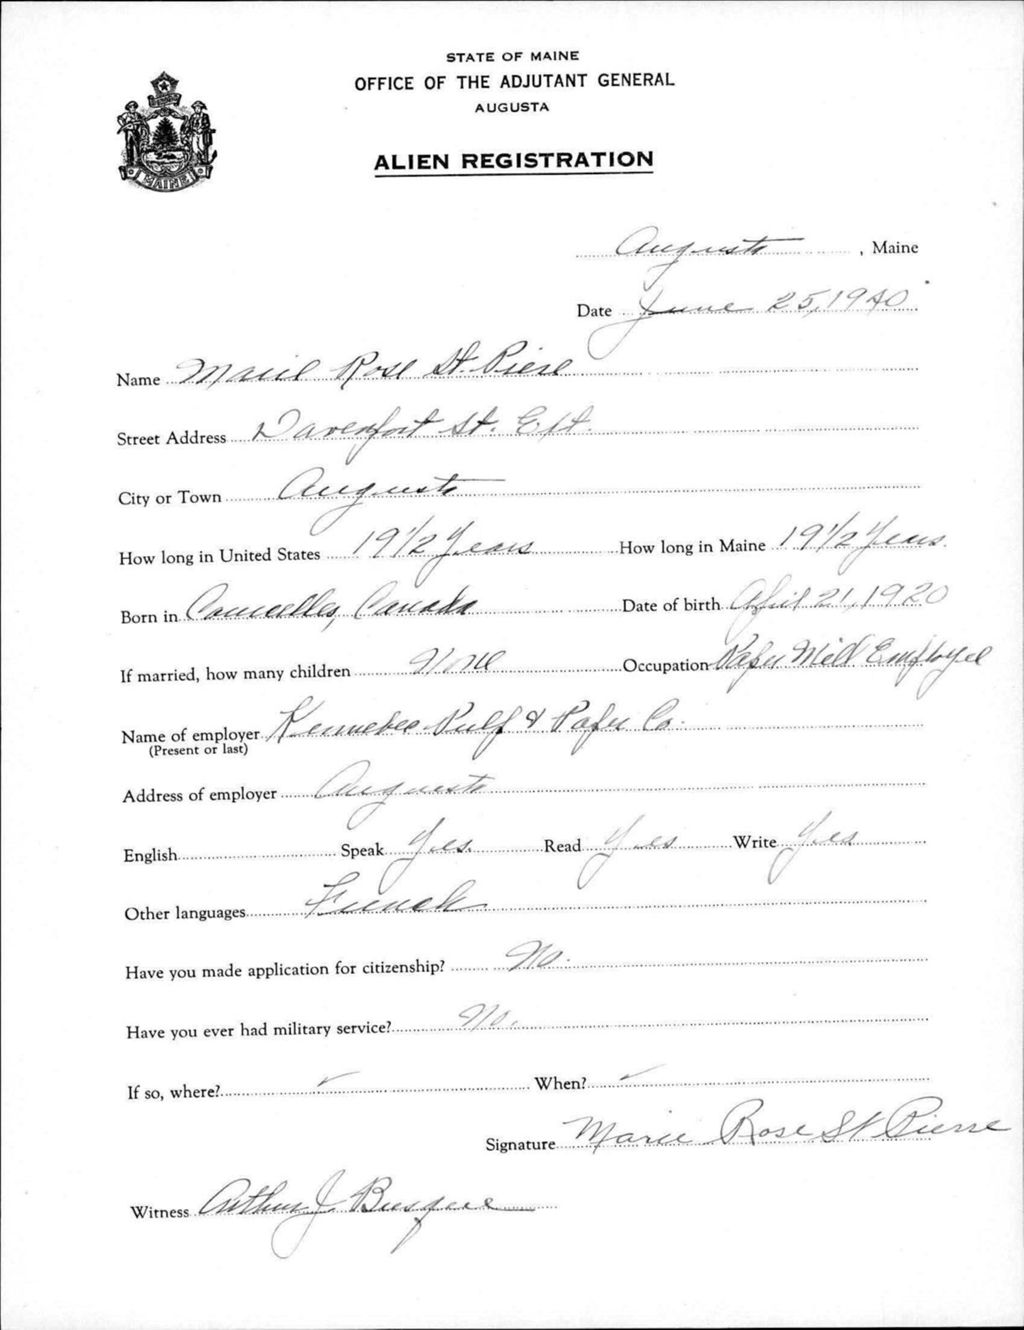 STATE OF MAINE
OFFICE OF THE ADJUTANT GENERAL
AUGUSTA
MAINE
ALIEN REGISTRATION
Augusta, Maine
Date June 25, 1940
Name Marie Rose St. Piere
Street Address Davenport St. Ext.
City or Town Augusta
How long in United States 19 1/2 Years How long in Maine 19 1/2 Years
Born in Canada Date of birth April 21, 1920
If married, how many children None Occupation Paper Mill Employee
Name of employer Kennebec Pulp & Paper Co.
(Present or last)
Address of employer Augusta
English Speak Yes. Read Yes Write Yes
Other languages French
Have you made application for citizenship? No.
Have you ever had military service? No.
If so, where? ✓ When? ✓
Signature Marie Rose St Pierre
Witness Arthur J.